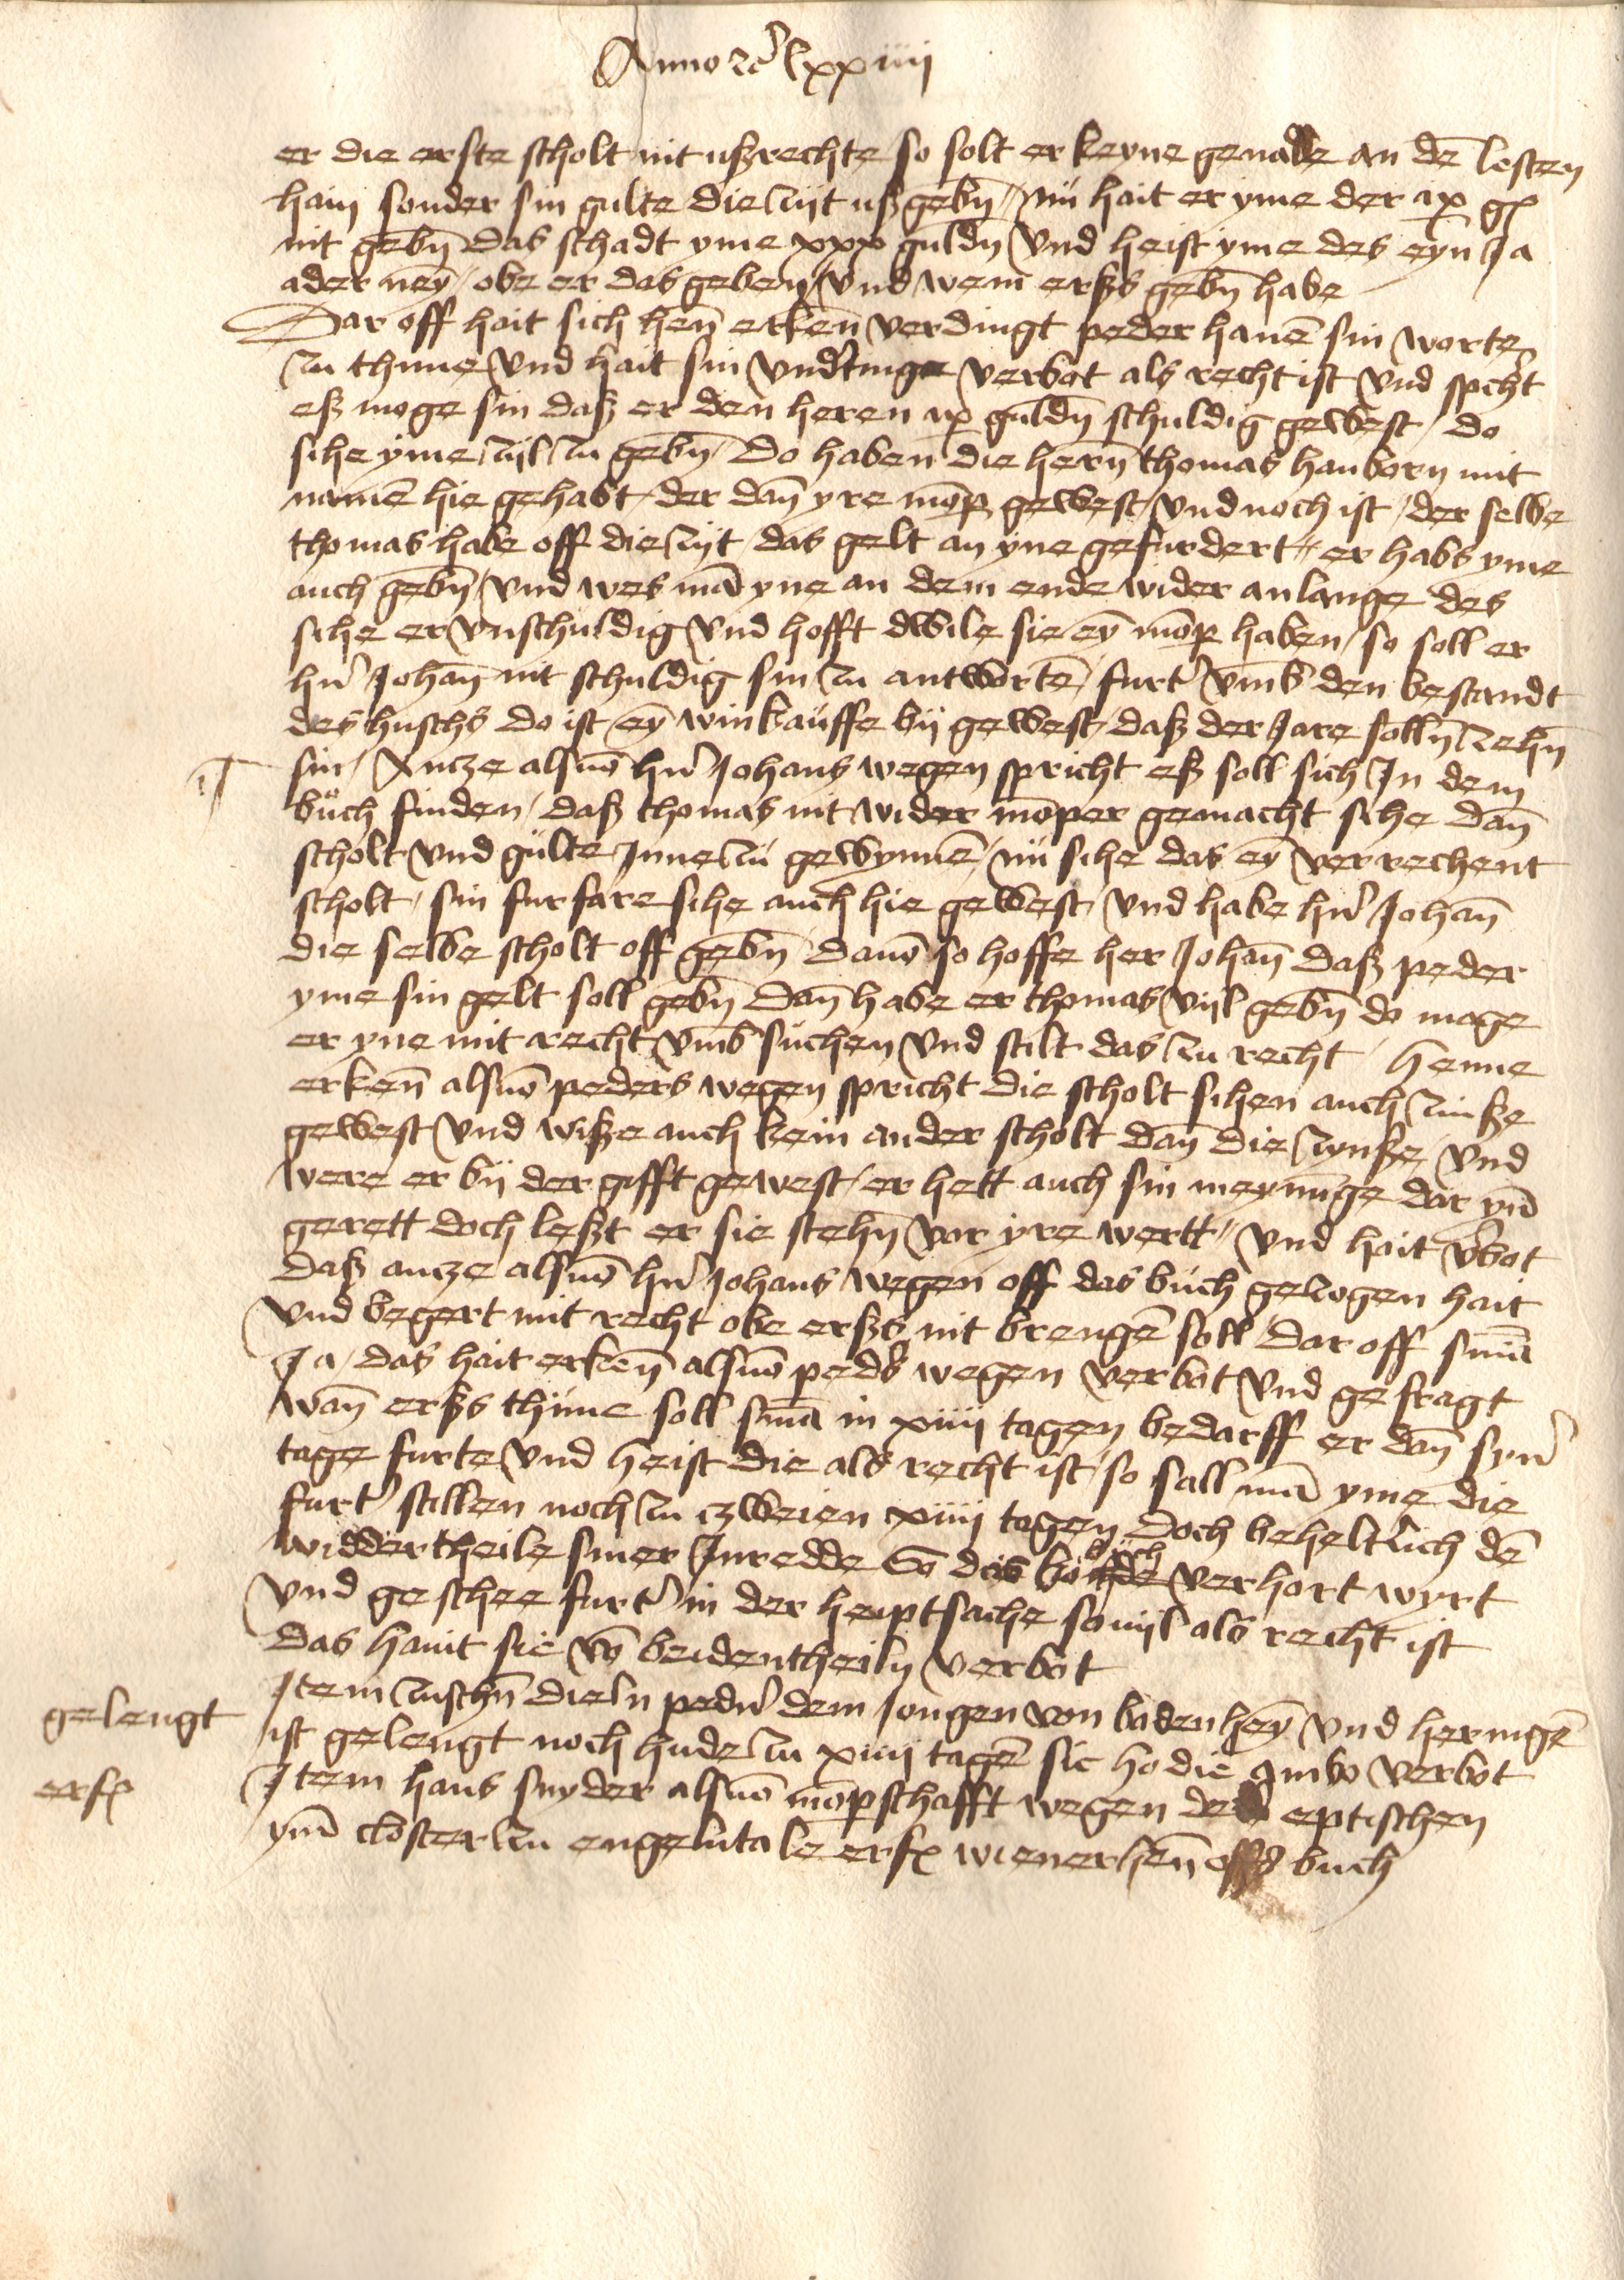 Anno etc̃ lxxiiii
er die erste scholt nit ußrechte so solt er keyne genade an dē lesten
hain sonder sin gulte die zijt uß gebñ / nü hait er yme der xx gl
nit gebñ das schadt yme xxx guldñ vnd heist yme des eyn Ja
ader neỹ / obe er das geben vnd wem erßs gebñ habe
Dar off hait sich heñ erkeñ verdingt peder hanē sin worte
zu thune vnd hait sin vnd'tinge verbot als recht ist vnd spch't
eß moge sin daß er den heren xx guldñ schuldig gewest / do
sihe yme zijl zu gebñ / Do haben die herñ thomas hanborn mit
namē hie gehabt / der dañ yre mōp gewest vnd noch ist / der selbe
thomas habe off die zijt das gelt an yne gefurdert / er habs yme
auch gebñ / vnd wes mā yne an dem ende wider anlange des
sihe er vnschuldig vnd hofft dwile sie eỹ mōp haben / so soll er
h'n Johañ nit schuldig sin zu antwortē / furt' vmb den bestandt
des huschs do ist eỹ winkauffe bij gewest / daß der Jare sollñ zehñ
sin / Antze als vō h'n Johans wegen spricht eß soll sich In dem
buch finden / daß thomas nit wider mōper gemacht sihe dañ
scholt vnd gulte Inne zu gewynnē / nü sihe das eỹ verrechent
scholt / sin furfare sihe auch hie gewest / vnd habe h'n Johañ
die selbe scholt off gebñ / davō so hoffe her Johañ daß peder
yme sin gelt soll gebñ dañ habe er thomas vijl gebñ do moge
er yne mit recht vmb suchen vnd stilt das zu recht / Henne
erkeñ als vō peders wegen spricht die scholt sihen auch zinße
gewest vnd wiße auch kein ander scholt dañ die zynße / vnd
were er bij der gifft gewest / er hett auch sin meynūge dar yn̄
gerett doch leßt er sie stehñ vor yre wertt / vnd hait v'bot
daß antze als vō h'n Johans wegen off das buch gezogen hait
vnd begert mit recht obe erßs nit brengē soll / dar off sniā
Ja / das hait erkeñ als vō ped's wegen verbot vnd gefragt
wañ erßs thune soll sniā in xiiii tagen bedarff er dañ syn'
tage furte vnd heist die als recht ist / so sall mā yme die
furt' stillen noch zu zweien xiiii tagen doch beheltlich dē
widdertheile siner Inredde So das buch verhort wyrt
vnd geschee furt' in der heuptsache so vijl als recht ist
Das hant sie vō beidentheiln verbot
Item zuschñ dieln ped'n dem Jongen von badenheỹ vnd heringē
ist gelengt noch hude zu xiiii tagē sic hodie ambo verbot
Item hans snyder als vō mōpschafft wegen der eptischen
ym̄ closter zu engelntale erf wiener heñ offs buch
gelengt
erf